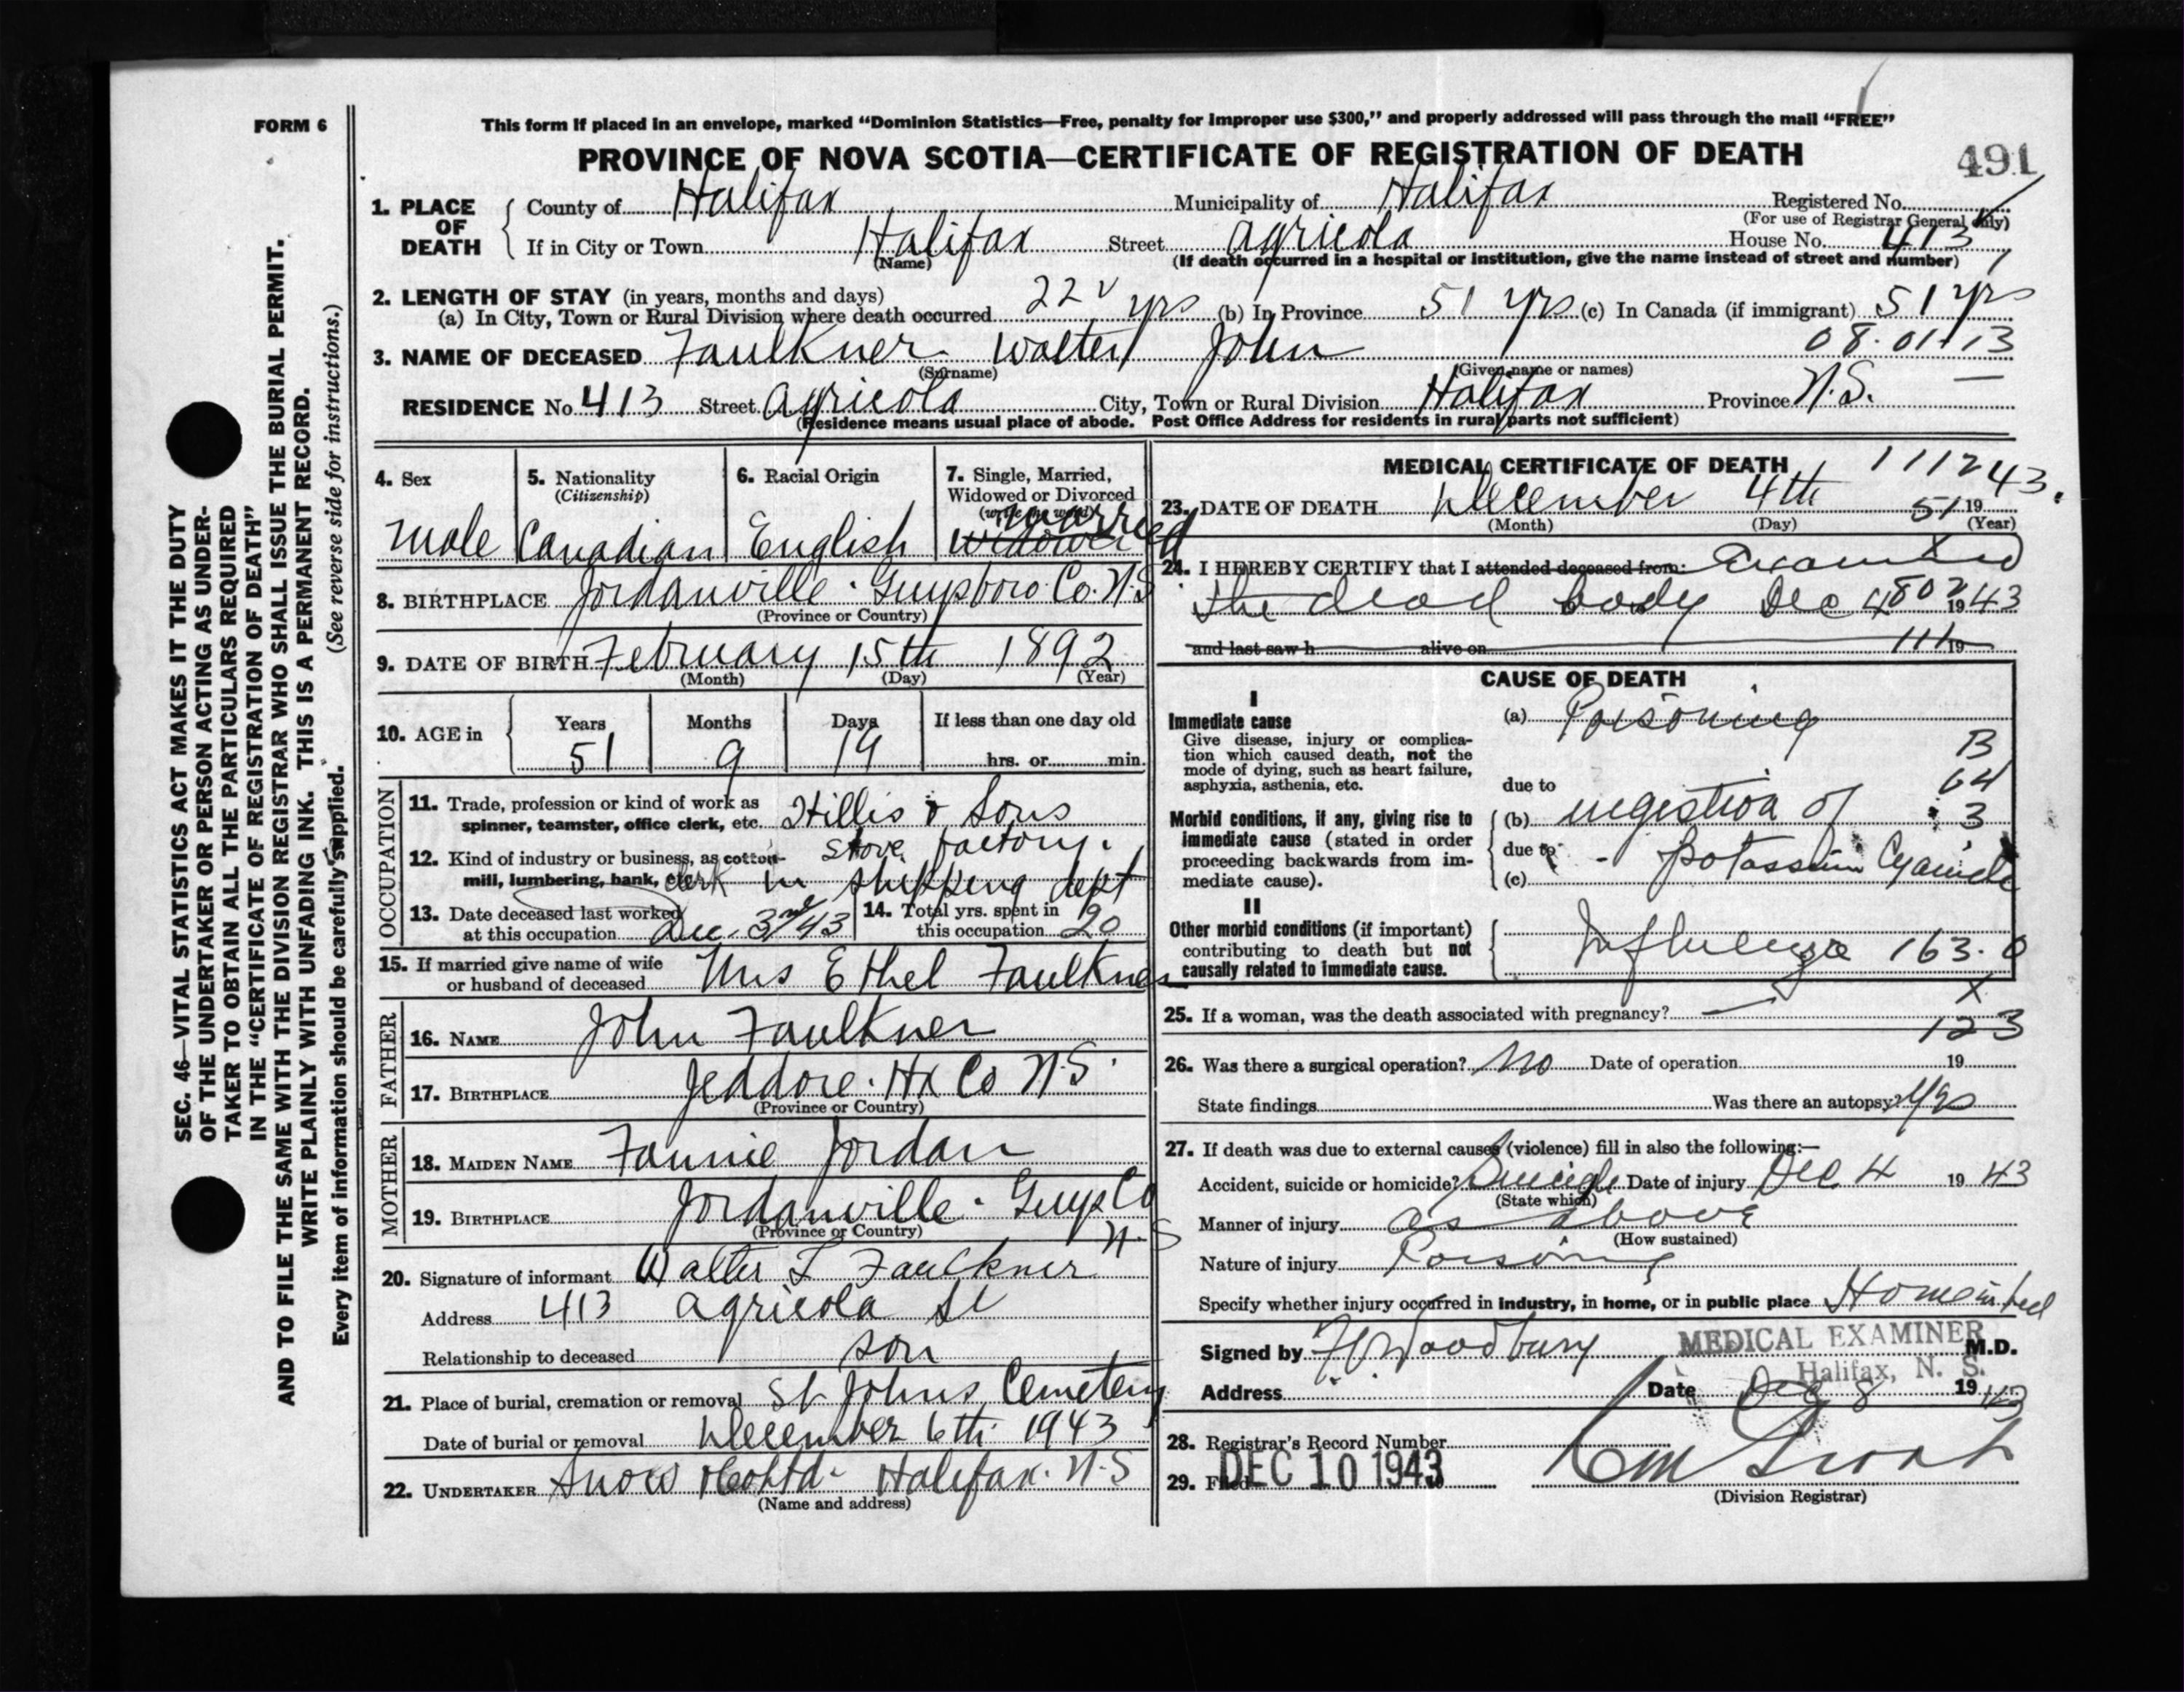 FORM 6
This form if placed in an envelope, marked “Dominion Statistics—Free, penalty for improper use $300,” and properly addressed will pass through the mail “FREE”
PROVINCE OF NOVA SCOTIA—CERTIFICATE OF REGISTRATION OF DEATH
491
1. PLACE OF DEATH
County of Halifax Municipality of Halifax Registered No.
(For use of Registrar General only)
If in City or Town Halifax Street Agricola House No. 413
(Name) (If death occurred in a hospital or institution, give the name instead of street and number)
2. LENGTH OF STAY (in years, months and days)
(a) In City, Town or Rural Division where death occurred 22 yrs (b) In Province 51 yrs (c) In Canada (if immigrant) 51 yrs
08.01.13
3. NAME OF DECEASED Faulkner Walter John
(Surname) (Given name or names)
RESIDENCE No. 413 Street Agricola City, Town or Rural Division Halifax Province N.S.
(Residence means usual place of abode. Post Office Address for residents in rural parts not sufficient)
4. Sex
Male
5. Nationality
(Citizenship)
Canadian
6. Racial Origin
English
7. Single, Married,
Widowed or Divorced
(write the word)
Married
Widower
8. BIRTHPLACE Jordanville. Guysboro Co. N.S.
(Province or Country)
9. DATE OF BIRTH February 15th 1892
(Month) (Day) (Year)
10. AGE in
Years Months Days If less than one day old
51 9 19 hrs. or min.
OCCUPATION
11. Trade, profession or kind of work as
spinner, teamster, office clerk, etc. Hillis & Sons
12. Kind of industry or business, as cotton- stove factory.
mill, lumbering, bank, etc. clerk in shipping dept
13. Date deceased last worked
at this occupation Dec. 3rd/43
14. Total yrs. spent in
this occupation 20
15. If married give name of wife
or husband of deceased Mrs Ethel Faulkner
FATHER
16. NAME John Faulkner
17. BIRTHPLACE Jeddore. Hx Co N.S.
(Province or Country)
MOTHER
18. MAIDEN NAME Fannie Jordan
19. BIRTHPLACE Jordanville. Guys Co
(Province or Country) N.S
20. Signature of informant Walter L Faulkner
Address 413 Agricola St
Relationship to deceased son
21. Place of burial, cremation or removal St Johns Cemetery
Date of burial or removal December 6th 1943
22. UNDERTAKER Snow & Co Ltd. Halifax. N.S
(Name and address)
MEDICAL CERTIFICATE OF DEATH
111243.
23. DATE OF DEATH December 4th 51 19
(Month) (Day) (Year)
24. I HEREBY CERTIFY that I attended deceased from: Examined
the dead body Dec 4 802 1943
and last saw h alive on 111 19
CAUSE OF DEATH
I
Immediate cause
Give disease, injury or complica-
tion which caused death, not the
mode of dying, such as heart failure,
asphyxia, asthenia, etc.
(a) Poisoning
B
64
3
due to
Morbid conditions, if any, giving rise to
immediate cause (stated in order
proceeding backwards from im-
mediate cause).
(b) ingestion of
due to
(c) Potassium Cyanide
II
Other morbid conditions (if important)
contributing to death but not
causally related to immediate cause.
Influenza 163.0
X
25. If a woman, was the death associated with pregnancy?
123
26. Was there a surgical operation? No Date of operation 19
State findings Was there an autopsy? Yes
27. If death was due to external causes (violence) fill in also the following:—
Accident, suicide or homicide? Suicide Date of injury Dec 4 19 43
(State which)
Manner of injury as above
(How sustained)
Nature of injury Poisoning
Specify whether injury occurred in industry, in home, or in public place Home in bed
Signed by Woodbury M.D.
MEDICAL EXAMINER
Halifax, N. S.
Address Date Dec 8 19 43
28. Registrar's Record Number
29. Filed DEC 10 1943
(Division Registrar)
SEC. 46—VITAL STATISTICS ACT MAKES IT THE DUTY
OF THE UNDERTAKER OR PERSON ACTING AS UNDER-
TAKER TO OBTAIN ALL THE PARTICULARS REQUIRED
IN THE “CERTIFICATE OF REGISTRATION OF DEATH”
AND TO FILE THE SAME WITH THE DIVISION REGISTRAR WHO SHALL ISSUE THE BURIAL PERMIT.
WRITE PLAINLY WITH UNFADING INK. THIS IS A PERMANENT RECORD.
Every item of information should be carefully supplied. (See reverse side for instructions.)